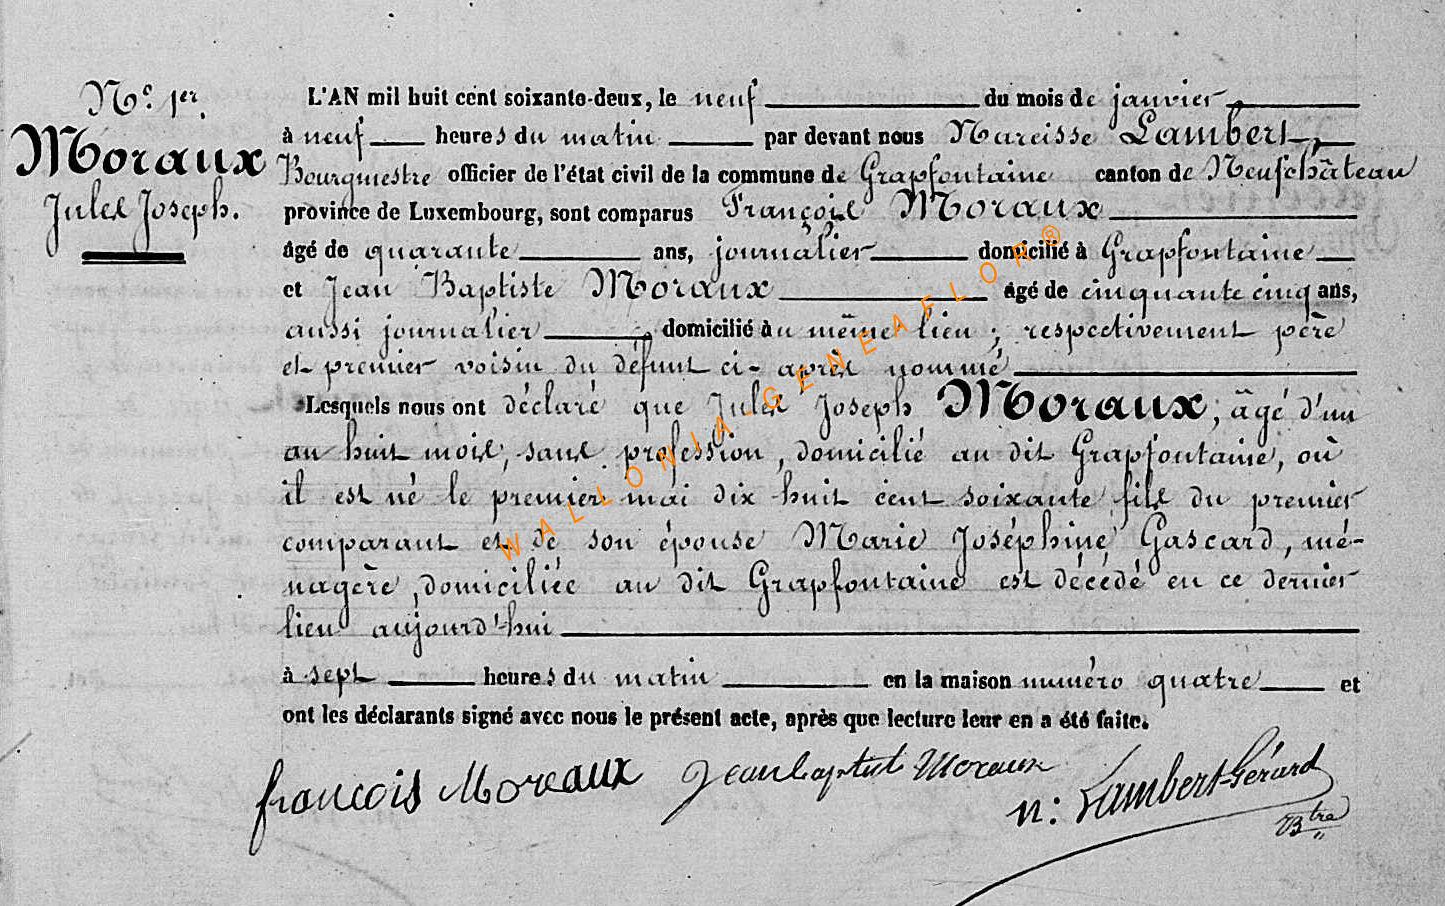 N.° 1er.
Moraux
Jules Joseph.
L'AN mil huit cent soixante-deux, le neuf du mois de janvier,
à neuf heures du matin par devant nous Narcisse Lambert,
Bourgmestre officier de l'état civil de la commune de Grapfontaine canton de Neufchâteau
province de Luxembourg, sont comparus François Moraux
âgé de quarante ans, journalier domicilié à Grapfontaine
et Jean Baptiste Moraux âgé de cinquante cinq ans,
aussi journalier, domicilié au même lieu; respectivement père
et premier voisin du défunt ci-après nommé
Lesquels nous ont déclaré que Jules Joseph Moraux, âgé d'un
an huit mois, sans profession, domicilié au dit Grapfontaine, où
il est né le premier mai dix huit cent soixante fils du premier
comparant et de son épouse Marie Joséphine Gascard, mé-
nagère, domiciliée au dit Grapfontaine est décédé en ce dernier
lieu aujourd'hui
à sept heures du matin en la maison numéro quatre et
ont les déclarants signé avec nous le présent acte, après que lecture leur en a été faite.
françois Moreaux Jeanbaptist Moraux n: Lambert-Gérard
Btre
WALLONIA-GENEAFLOR®